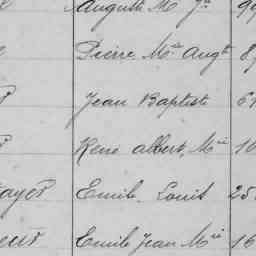 Auguste M Jn
Pierre Mie Augte
Jean Baptiste 6
René albert, Mie 10
Emile Louis 25
Emile Jean Mie 16